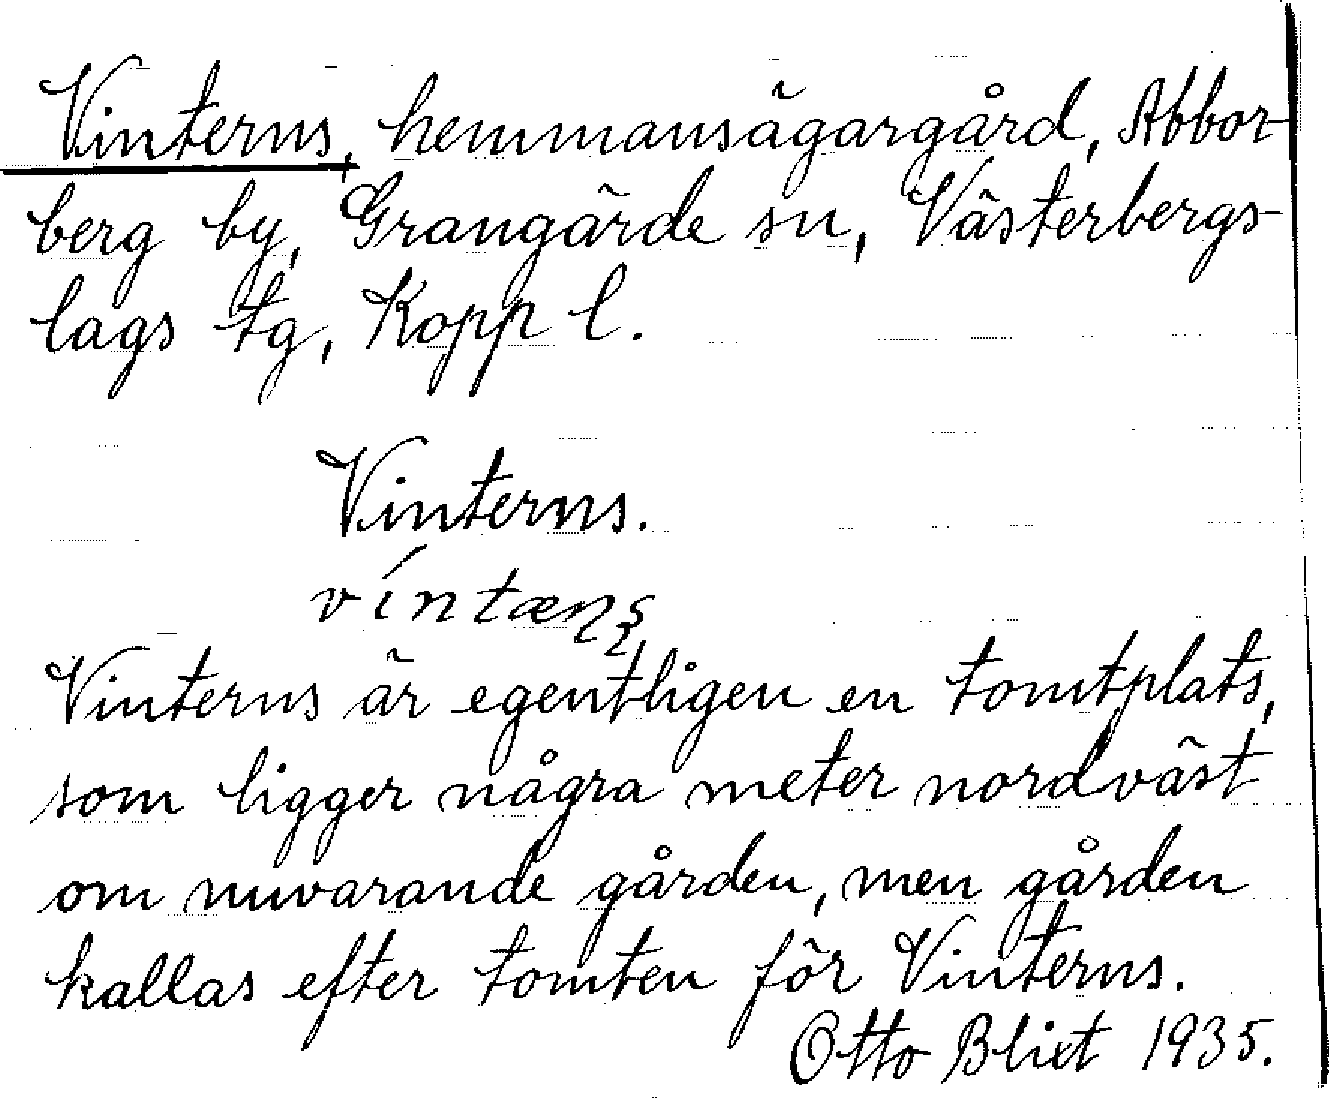 Vinterns, hemmansägargård, Abbor-
berg by, Grangärde sn, Västerbergs-
lags tg, Kopp l.
Vinterns.
víntæṇṣ
Vinterns är egentligen en tomtplats,
som ligger några meter nordväst
om nuvarande gården, men gården
kallas efter tomten för Vinterns.
Otto Blixt 1935.